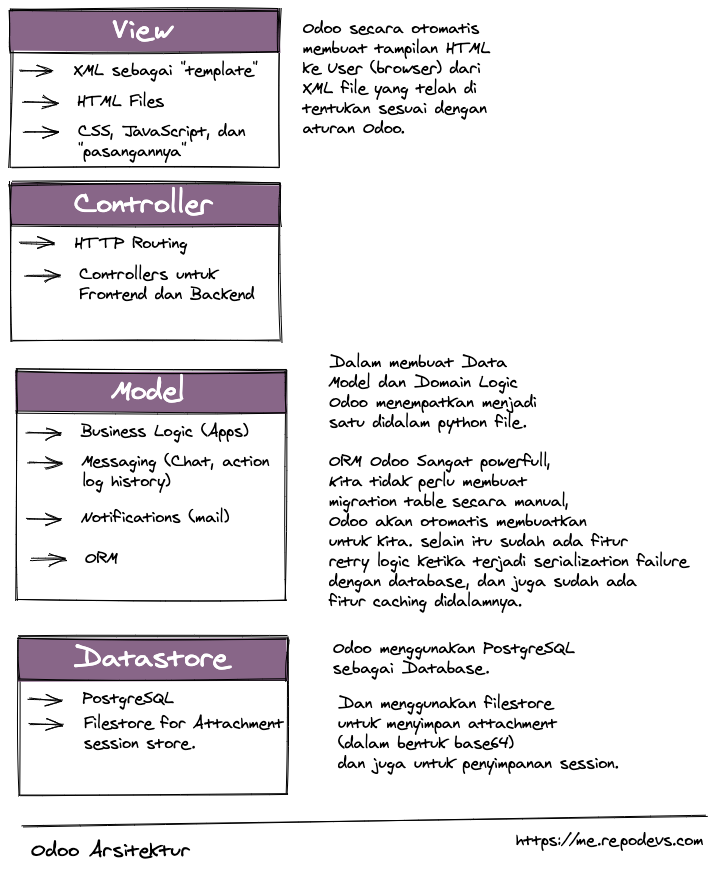 View
XML sebagai "template"
HTML Files
CSS, JavaScript, dan
"pasangannya"
Odoo secara otomatis
membuat tampilan HTML
ke User (browser) dari
XML file yang telah di
tentukan sesuai dengan
aturan Odoo.
Controller
HTTP Routing
Controllers untuk
Frontend dan Backend
Model
Business Logic (Apps)
Messaging (Chat, action
log history)
Notifications (mail)
ORM
Dalam membuat Data
Model dan Domain Logic
Odoo menempatkan menjadi
satu didalam python file.
ORM Odoo Sangat powerfull,
kita tidak perlu membuat
migration table secara manual,
Odoo akan otomatis membuatkan
untuk kita. selain itu sudah ada fitur
retry logic ketika terjadi serialization failure
dengan database, dan juga sudah ada
fitur caching didalamnya.
Datastore
PostgreSQL
Filestore for Attachment
session store.
Odoo menggunakan PostgreSQL
sebagai Database.
Dan menggunakan filestore
untuk menyimpan attachment
(dalam bentuk base64)
dan juga untuk penyimpanan session.
Odoo Arsitektur
https://me.repodevs.com